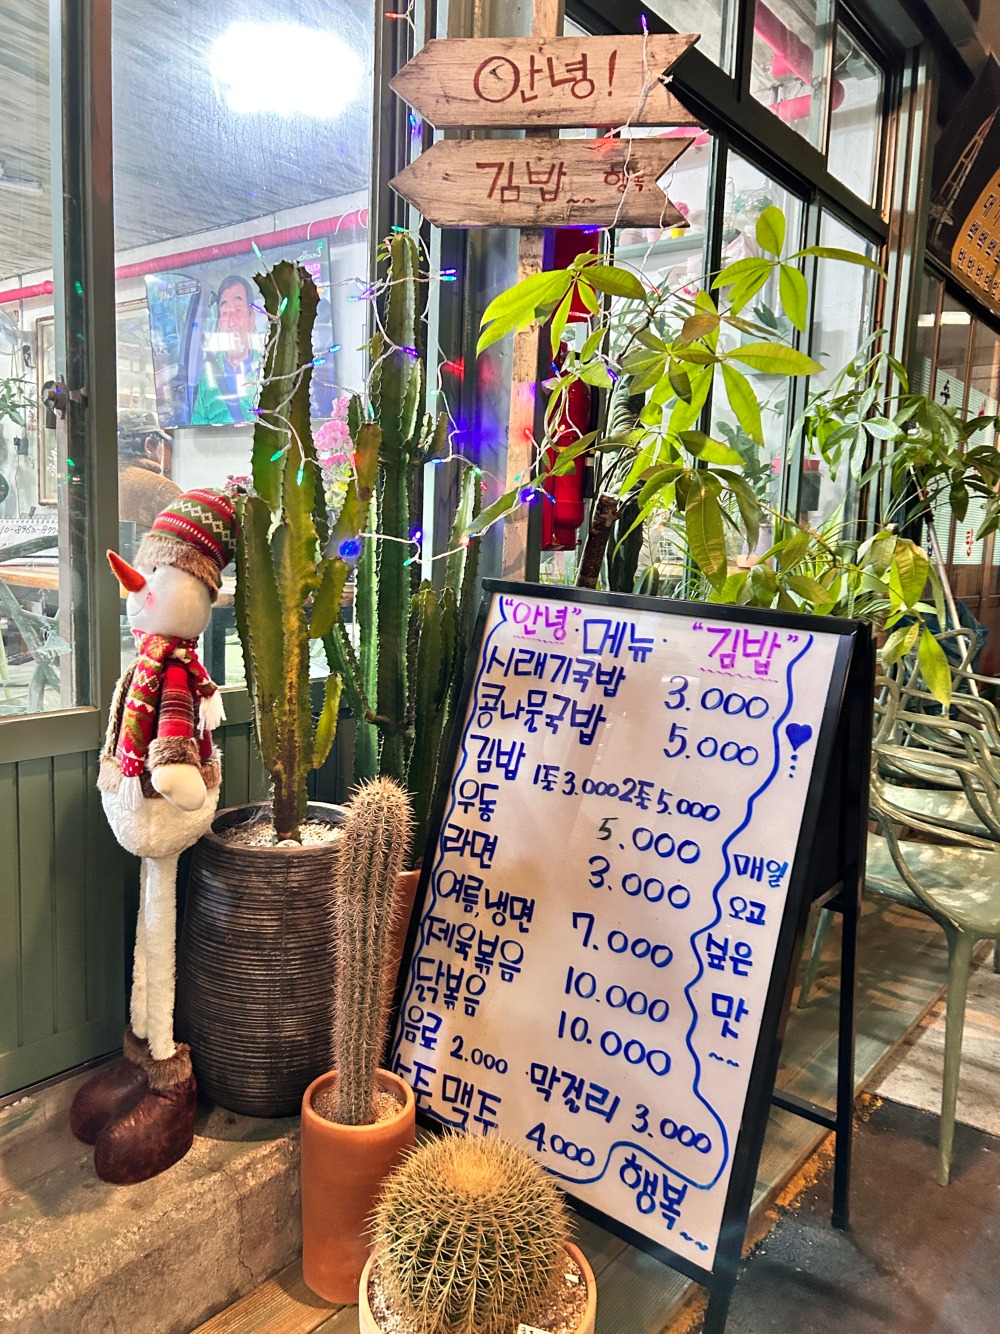 안녕!
김밥~~ 행복
"안녕" 메뉴 "김밥"
시래기국밥 3.000
콩나물국밥 5.000
김밥 1줄 3.000 2줄 5.000
우동 5.000
라면 3.000
여름,냉면 7.000
제육볶음 10.000
닭볶음 10.000
음료 2.000 막걸리 3.000
소주 맥주 4.000
행복~~
매일
오고
싶은
맛
~~